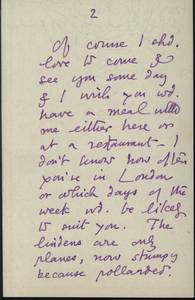 2
Of course I shd.
love to come &
see you some day
& I wish you wd.
have a meal with
me either here or
at a restaurant - I
don't know how often
you're in London
or which days of the
week wd. be likely
to suit you. The
lindens are only
planes, now stumpy
because pollarded.